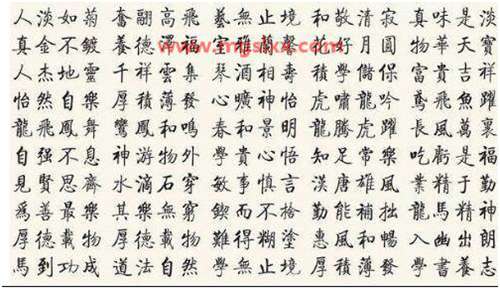 人淡如菊 奮翮高飛 藝無止境 和敬清寂 真味是淡
真金不鍍 養德 福 雅蘭馨 好月圓 物華天寶
人杰地靈 千祥雲集 琴酒相壽 積學儲 富貴吉祥
怡然自樂 厚積薄發 心曠神怡 虎嘯龍吟 鳶飛魚躍
龍飛鳳舞 鸞鳳和鳴 春和景明 龍騰虎躍 長風萬裏
自强不息 神游物外 學貴心悟 知足常樂 吃虧是福
見賢思齊 水滴石穿 敏事慎言 漢唐雄風 業精于勤
爲善最樂 其樂無窮 鍥而不捨 勤能補拙 龍馬精神
厚德載物 厚德載物 難得糊塗 惠風和暢 入幽出朗
馬到功成 道法自然 學無止境 厚積薄發 學書養志